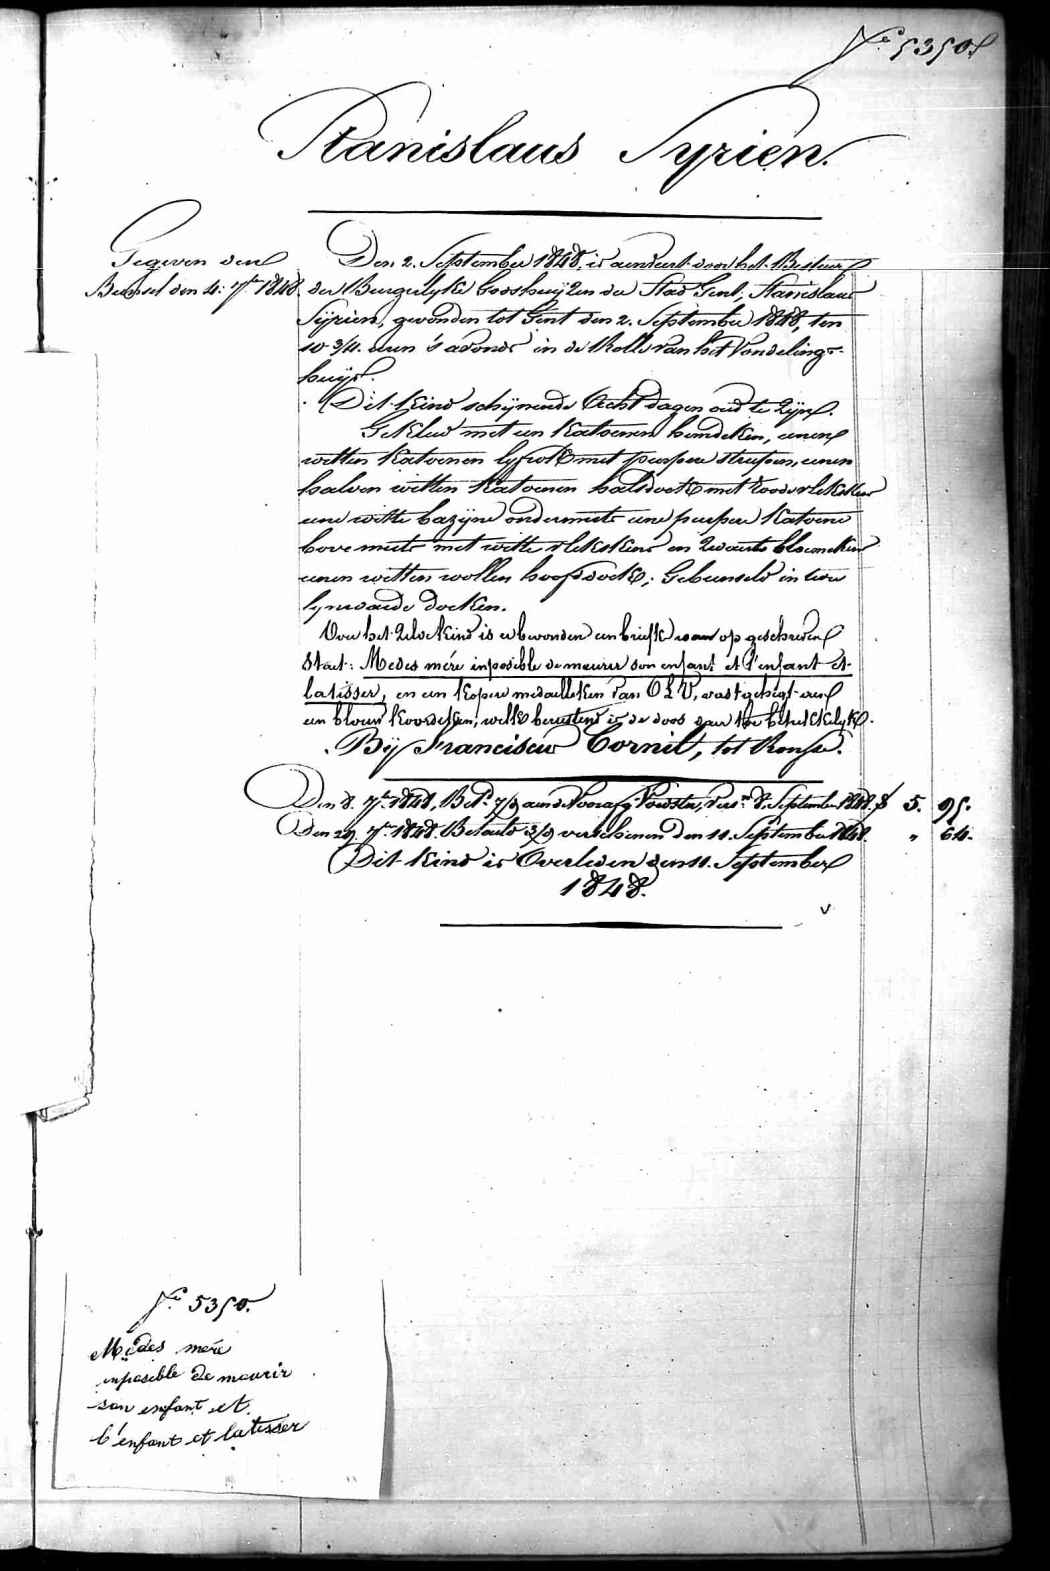 N.° 5350.
Stanislaus Syrien.
Gegeven den
Bundsel den 4: 7bre 1848.
Den 2. September 1848. is aenveert door het Bestuer
der Burgerlyke Godshuyzen der Stad Gent, Stanislaus
Syrien, gevonden tot Gent den 2. September 1848, ten
10 3/4. uren 's avonds in de Rolle van het Vondelings-
huys.
Dit kind schynende Acht dagen oud te zyn.
Gekleed met een katoenen hemdeken, eenen
witten katoenen lyfrok met purpere strepen, eenen
halven witten katoenen halsdoek met roode vlekskens
eene witte bazyne ondermuts eene purpere katoene
bovemuts met witte vlekskens en zwarte bloemekens
eenen witten wollen hoofdoek; Gebunseld in twee
lynwaede doeken.
Over het zelve kind is er bevonden een briefke waer op geschreven
Staet: Medes mére inposible de meurir son enfant et l'enfant et
latisser, en een kopere medailleken van O L V, vastgehegt aen
een blouw koordeken, welke berustend is de doos daer toe betrekkelyk.
By Franciscus Cornil, tot Ronse.
Den 8. 7bre 1848, Bet.d 7/9 aen de Voorafg Voedster, vers.n 8. September 1848. f 5. 95.
Den 29. 7bre 1848. Betaeld 3/9 verschenen den 11. September 1848. " 64.
Dit kind is Overleden den 11. September
1848.
N.° 5350.
Medes mére
inposible de meurir
son enfant et
l'enfant et latisser